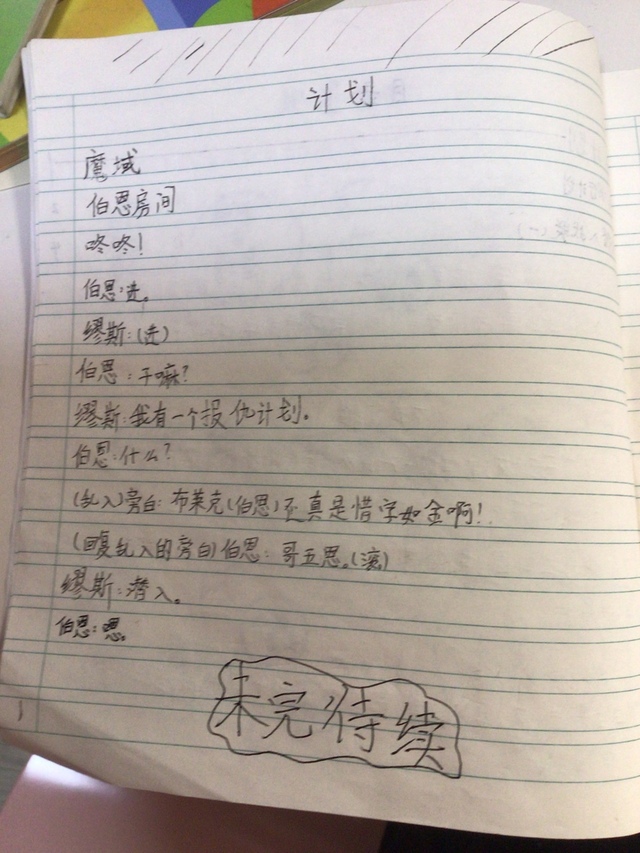 计划
魔域
伯恩房间
咚咚！
伯恩：进。
缪斯：（进）
伯恩：干嘛？
缪斯：我有一个报仇计划。
伯恩：什么？
（乱入）旁白：布莱克（伯恩）还真是惜字如金啊！
（回复乱入的旁白）伯恩：哥五恩。（滚）
缪斯：潜入。
伯恩：嗯。
未完待续